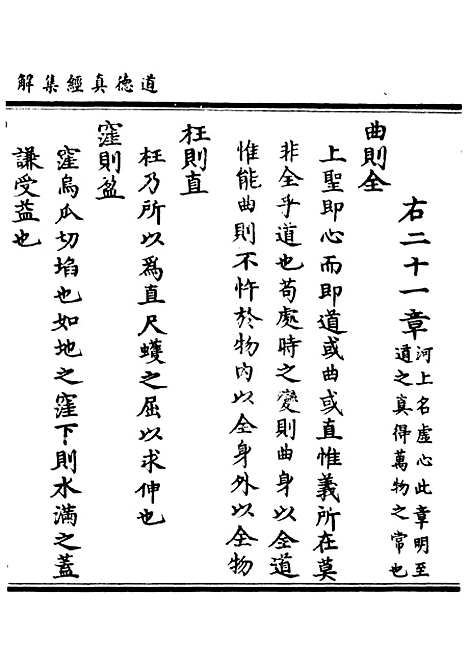 道德真經集解
右二十一章
河上名虛心此章明至
道之真得萬物之常也
曲則全
上聖即心而即道或曲或直惟義所在莫
非全乎道也苟處時之變則曲身以全道
惟能曲則不忤於物內以全身外以全物
枉則直
枉乃所以爲直尺蠖之屈以求伸也
窪則盈
窪烏瓜切埳也如地之窪下則水滿之蓋
謙受益也